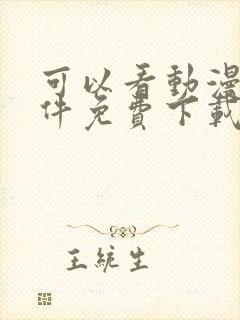 可以看動漫
件免費下載
王統生